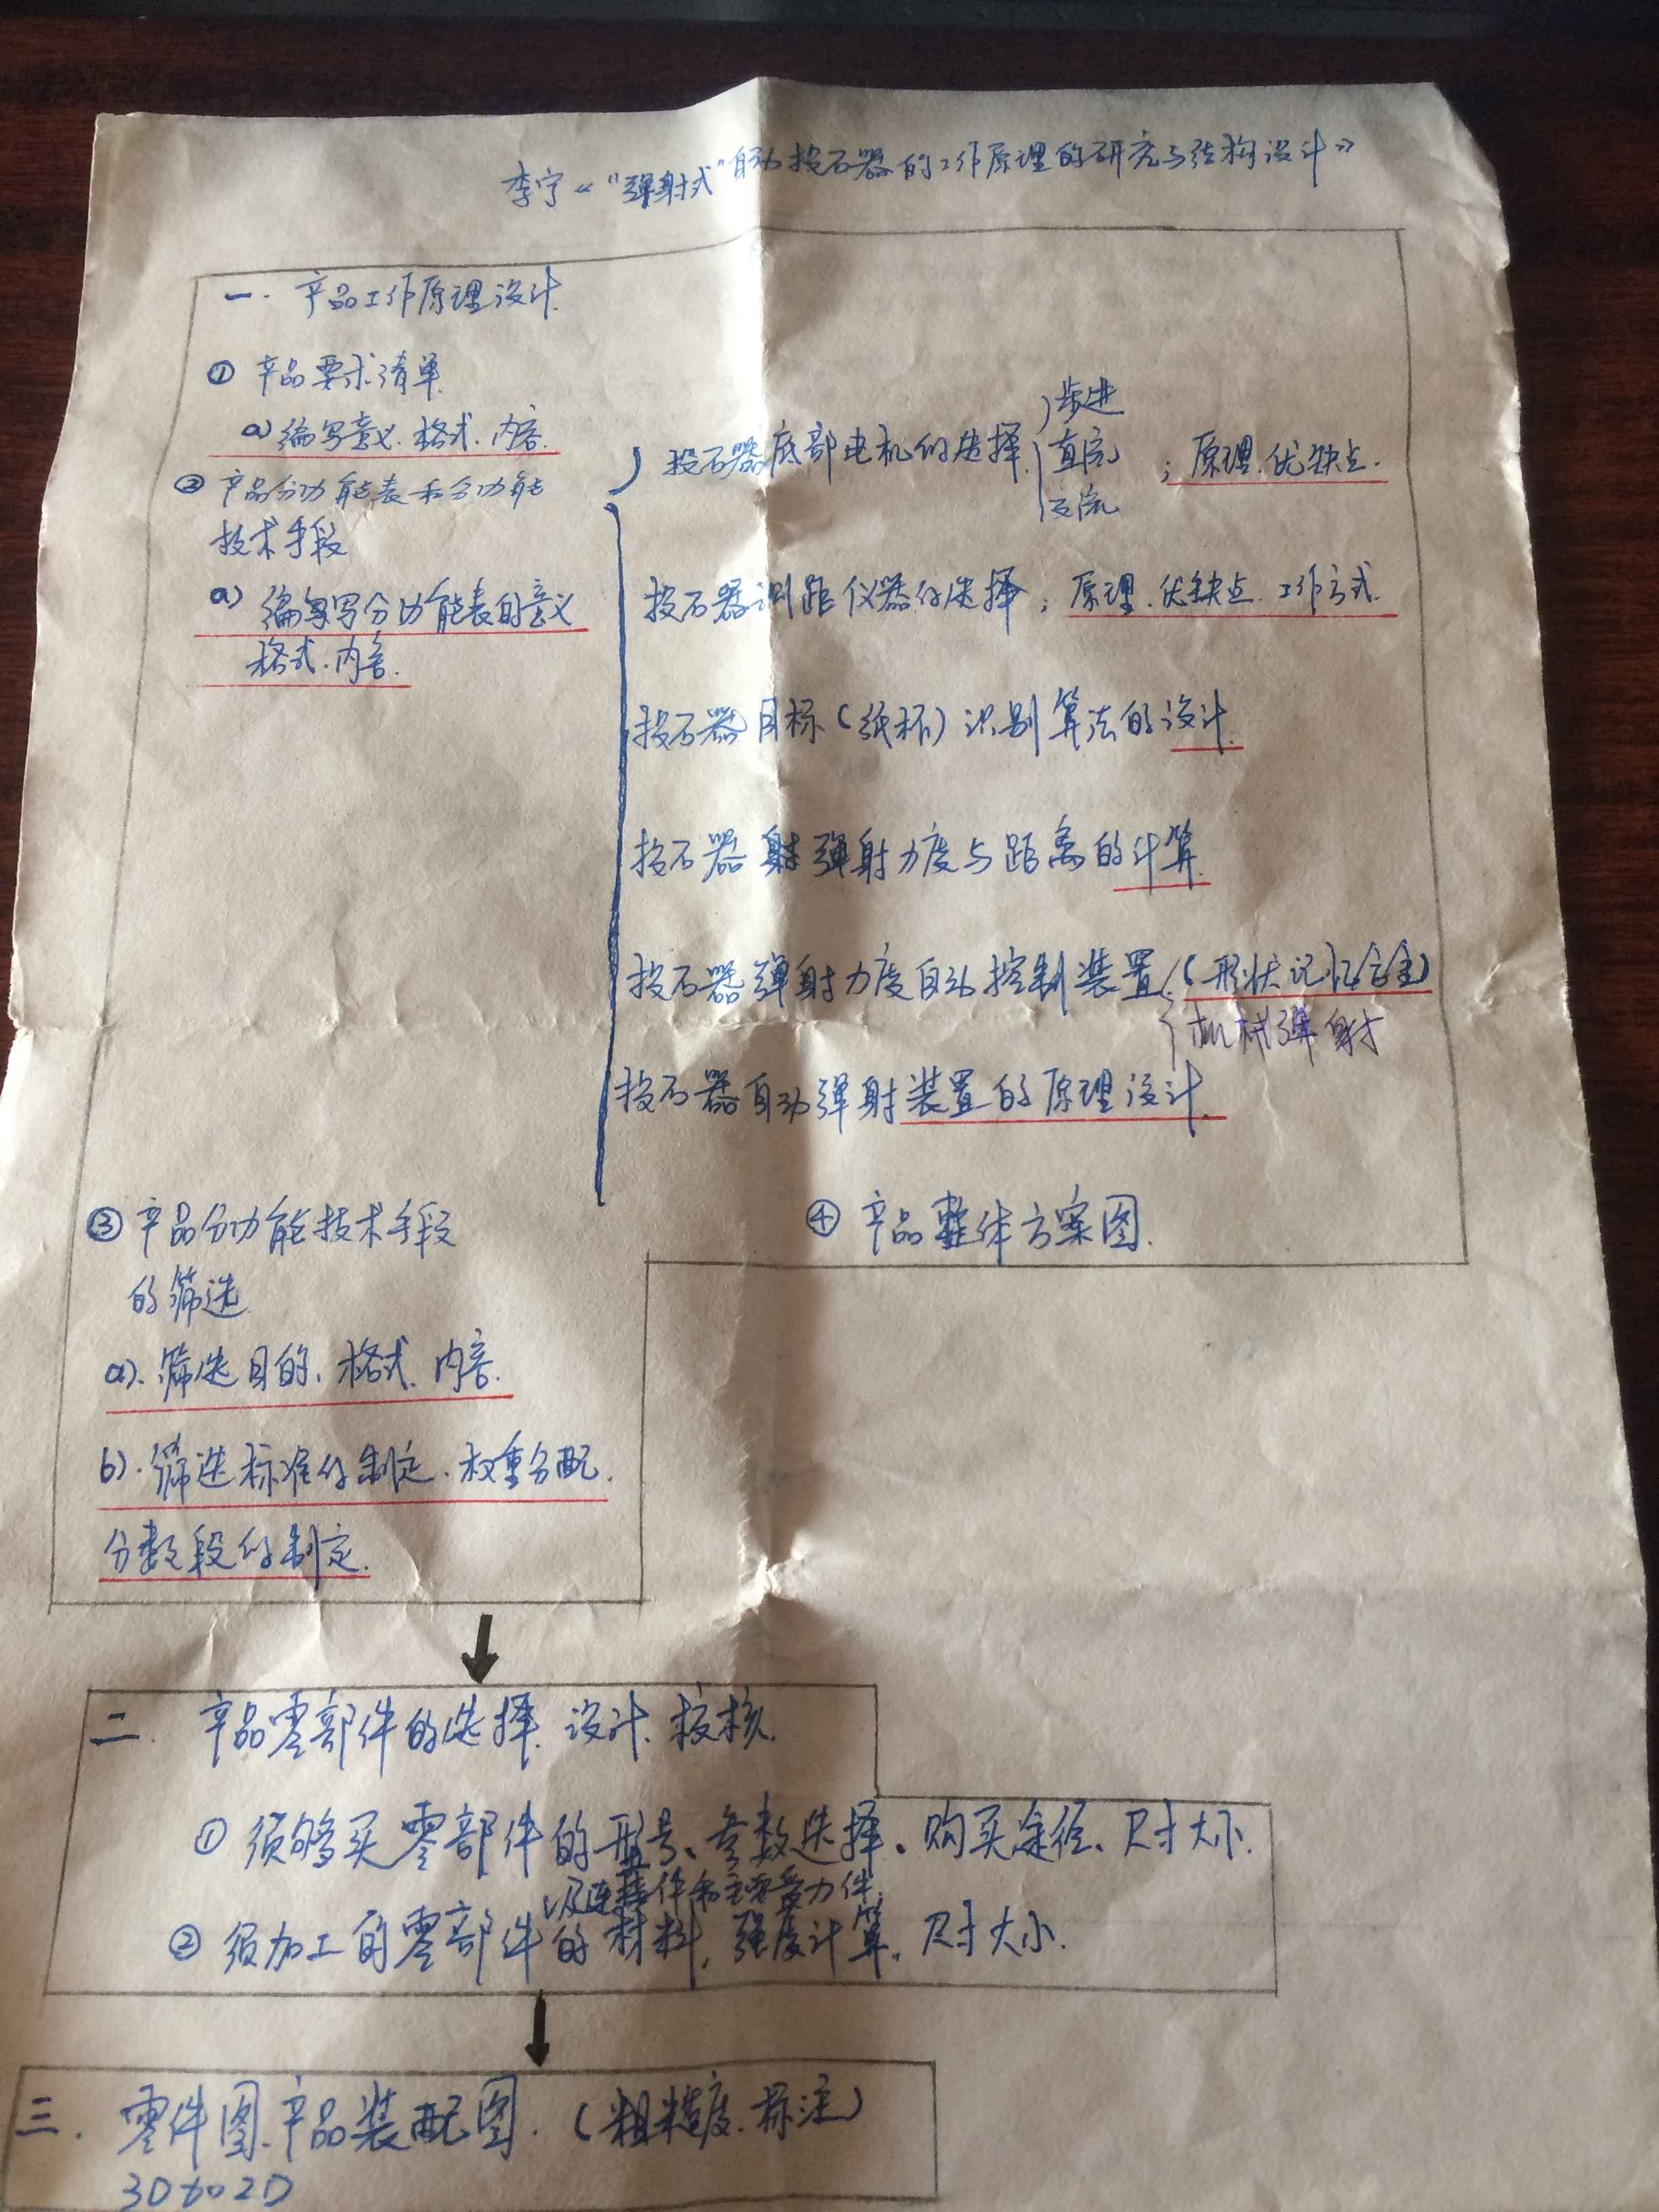 李宁《"弹射式"自动投石器的工作原理的研究与结构设计》
一. 产品工作原理设计.
① 产品要求清单.
a) 编写意义. 格式. 内容.
② 产品分功能表和分功能
技术手段
a) 编写分功能表的意义
格式. 内容.
投石器底部电机的选择. 步进
直流
交流
; 原理. 优缺点.
投石器测距仪器的选择; 原理. 优缺点. 工作方式.
投石器目标(纸杯)识别算法的设计.
投石器弹射力度与距离的计算.
投石器弹射力度自动控制装置 (形状记忆合金)
机械弹射
投石器自动弹射装置的原理设计.
③ 产品分功能技术手段
的筛选.
a). 筛选目的. 格式. 内容.
b). 筛选标准的制定. 权重分配.
分数段的制定.
④ 产品整体方案图.
二. 产品零部件的选择. 设计. 校核.
① 须够买零部件的型号、参数选择. 购买途径. 尺寸大小.
以及连接件和主要受力件.
② 须加工的零部件的材料, 强度计算. 尺寸大小.
三. 零件图. 产品装配图. (粗糙度. 标注)
3D to 2D